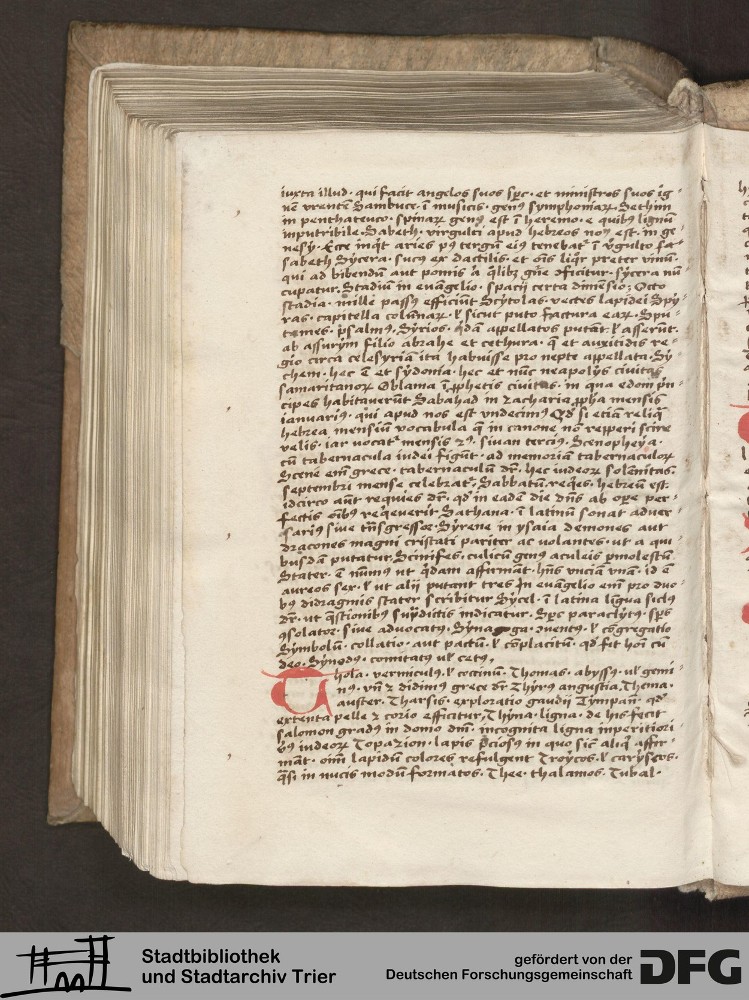 iuxta illud · qui facit angelos suos spc · et ministros suos ig
nē vrentē Sambuce · ī musicis · genꝰ symphoniaꝝ · Sethim
in pentateuco · spinaꝝ genꝰ est ī heremo · e quibꝰ lignū
inputribile · Sabeth · virgulti apud hebreos noīs est · in ge
nesy · Ecce inqt aries pꝰ tergū eiꝰ tenebatr ī vgulto sa
sabeth Sycera · sucꝰ ex dactilis · et oīs liqr preter vinū ·
qui ad bibendū aut pomis
cupatur, Stadiū in euāgelio · spacij certa dimēsio; Octo
stadia · mille passꝰ efficiūt Scytolas · vectes lapidei Spy
ras · capitella colūnaꝝ · ł sicut puto factura eaꝝ · Spu
psalmꝰ, Syrios · qdā appellatos putāt · ł asserūt ·
ab assurym filio abrahe et cethura · q et auxitidis re
gio circa celesyriam ita habuisse pro nepte appellata · Sy
chem · hec ē et sydonia · hec et nūc neapolys ciuitas
samaritanoꝝ Oblama ī ꝓphetis ciuitas · in qua edom pn
cipes habitauerūt Sabahad in zacharia ꝓpha mensis
ianuariꝰ · qui apud nos est vndecimꝰ Qd si etiā reliq
hebrea mensiū vocabula q in canone nō repperi scire
velis · iar vocatr mensis 2ꝰ · siuan terciꝰ · Scenopheya ·
cū tabernacula iudei figūt · ad memoriā tabernaculoꝝ
Scene em grece · tabernaculū dr · hec iudeoꝝ solēnitas ·
septembri mense celebratr, Sabbatū · reqes · hebreū est ·
idcirco aūt requies dr · qd in eadē die dns ab ope per
fectis oībꝰ reqeuerit Sathana · ī latinū sonat aduer
sariꝰ siue tnsgressor Syrene in ysaia demones aut
dracones magni cristati pariter ac volantes · ut a qui
busdā putatur, Scinifes · culicū genꝰ aculeis pmolestū
Stater · ē nūmꝰ ut qdam affirmāt · hns vnciā vnā · id ē
aureos sex · ł ut alij putant tres In euāgelio em pro duo
bꝰ didragmis stater scribitur Sycel · ī latina ligua siclꝰ
dr · ut qstionibꝰ indicatur · Spc paraclytꝰ · spūs
ꝯsolator · siue aduocatꝰ, · ł cōgregatio
Symbolū · collatio · aut pactū · ł cōplacitū · qd fit hoī cū
deo · Synodꝰ · comitatꝰ ul cetꝰ,
Thola · vermiculꝰ · ł coccinū · Thomas · abyssꝰ · ul gemi
nꝰ · vn 2 didimꝰ grece dr Thyrꝰ angustia, Thema ·
auster · Tharsis · exploratio gaudij Tympan · qd
extenta pelle 2 corio efficitur, Thyna · ligna · de his fecit
salomon gradꝰ in domo dni · incognita ligna inperitiori
bꝰ iudeoꝝ Topazion · lapis pciosꝰ in quo sic aliq affir
māt · oīm lapidū colores refulgent Troycos · ł caryscos ·
qsi in nucis modū formatos · Thee · thalamos · Tubal ·
Stadtbibliothek
und Stadtarchiv Trier
gefördert von der
Deutschen Forschungsgemeinschaft
DFG